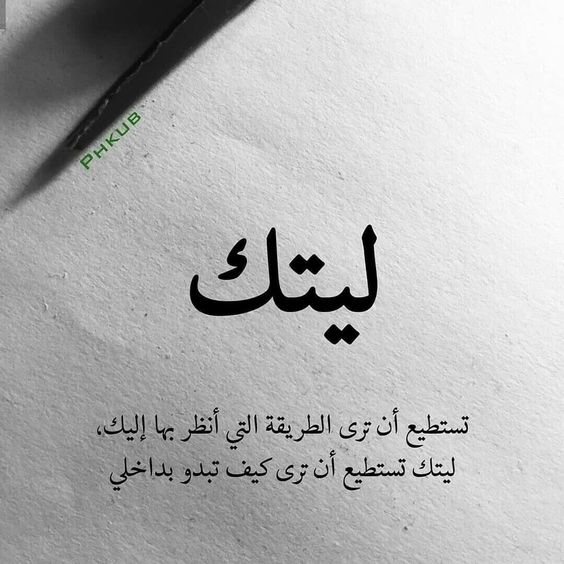 PHKUB
ليتك
تستطيع أن ترى الطريقة التي أنظر بها إليك،
ليتك تستطيع أن ترى كيف تبدو بداخلي